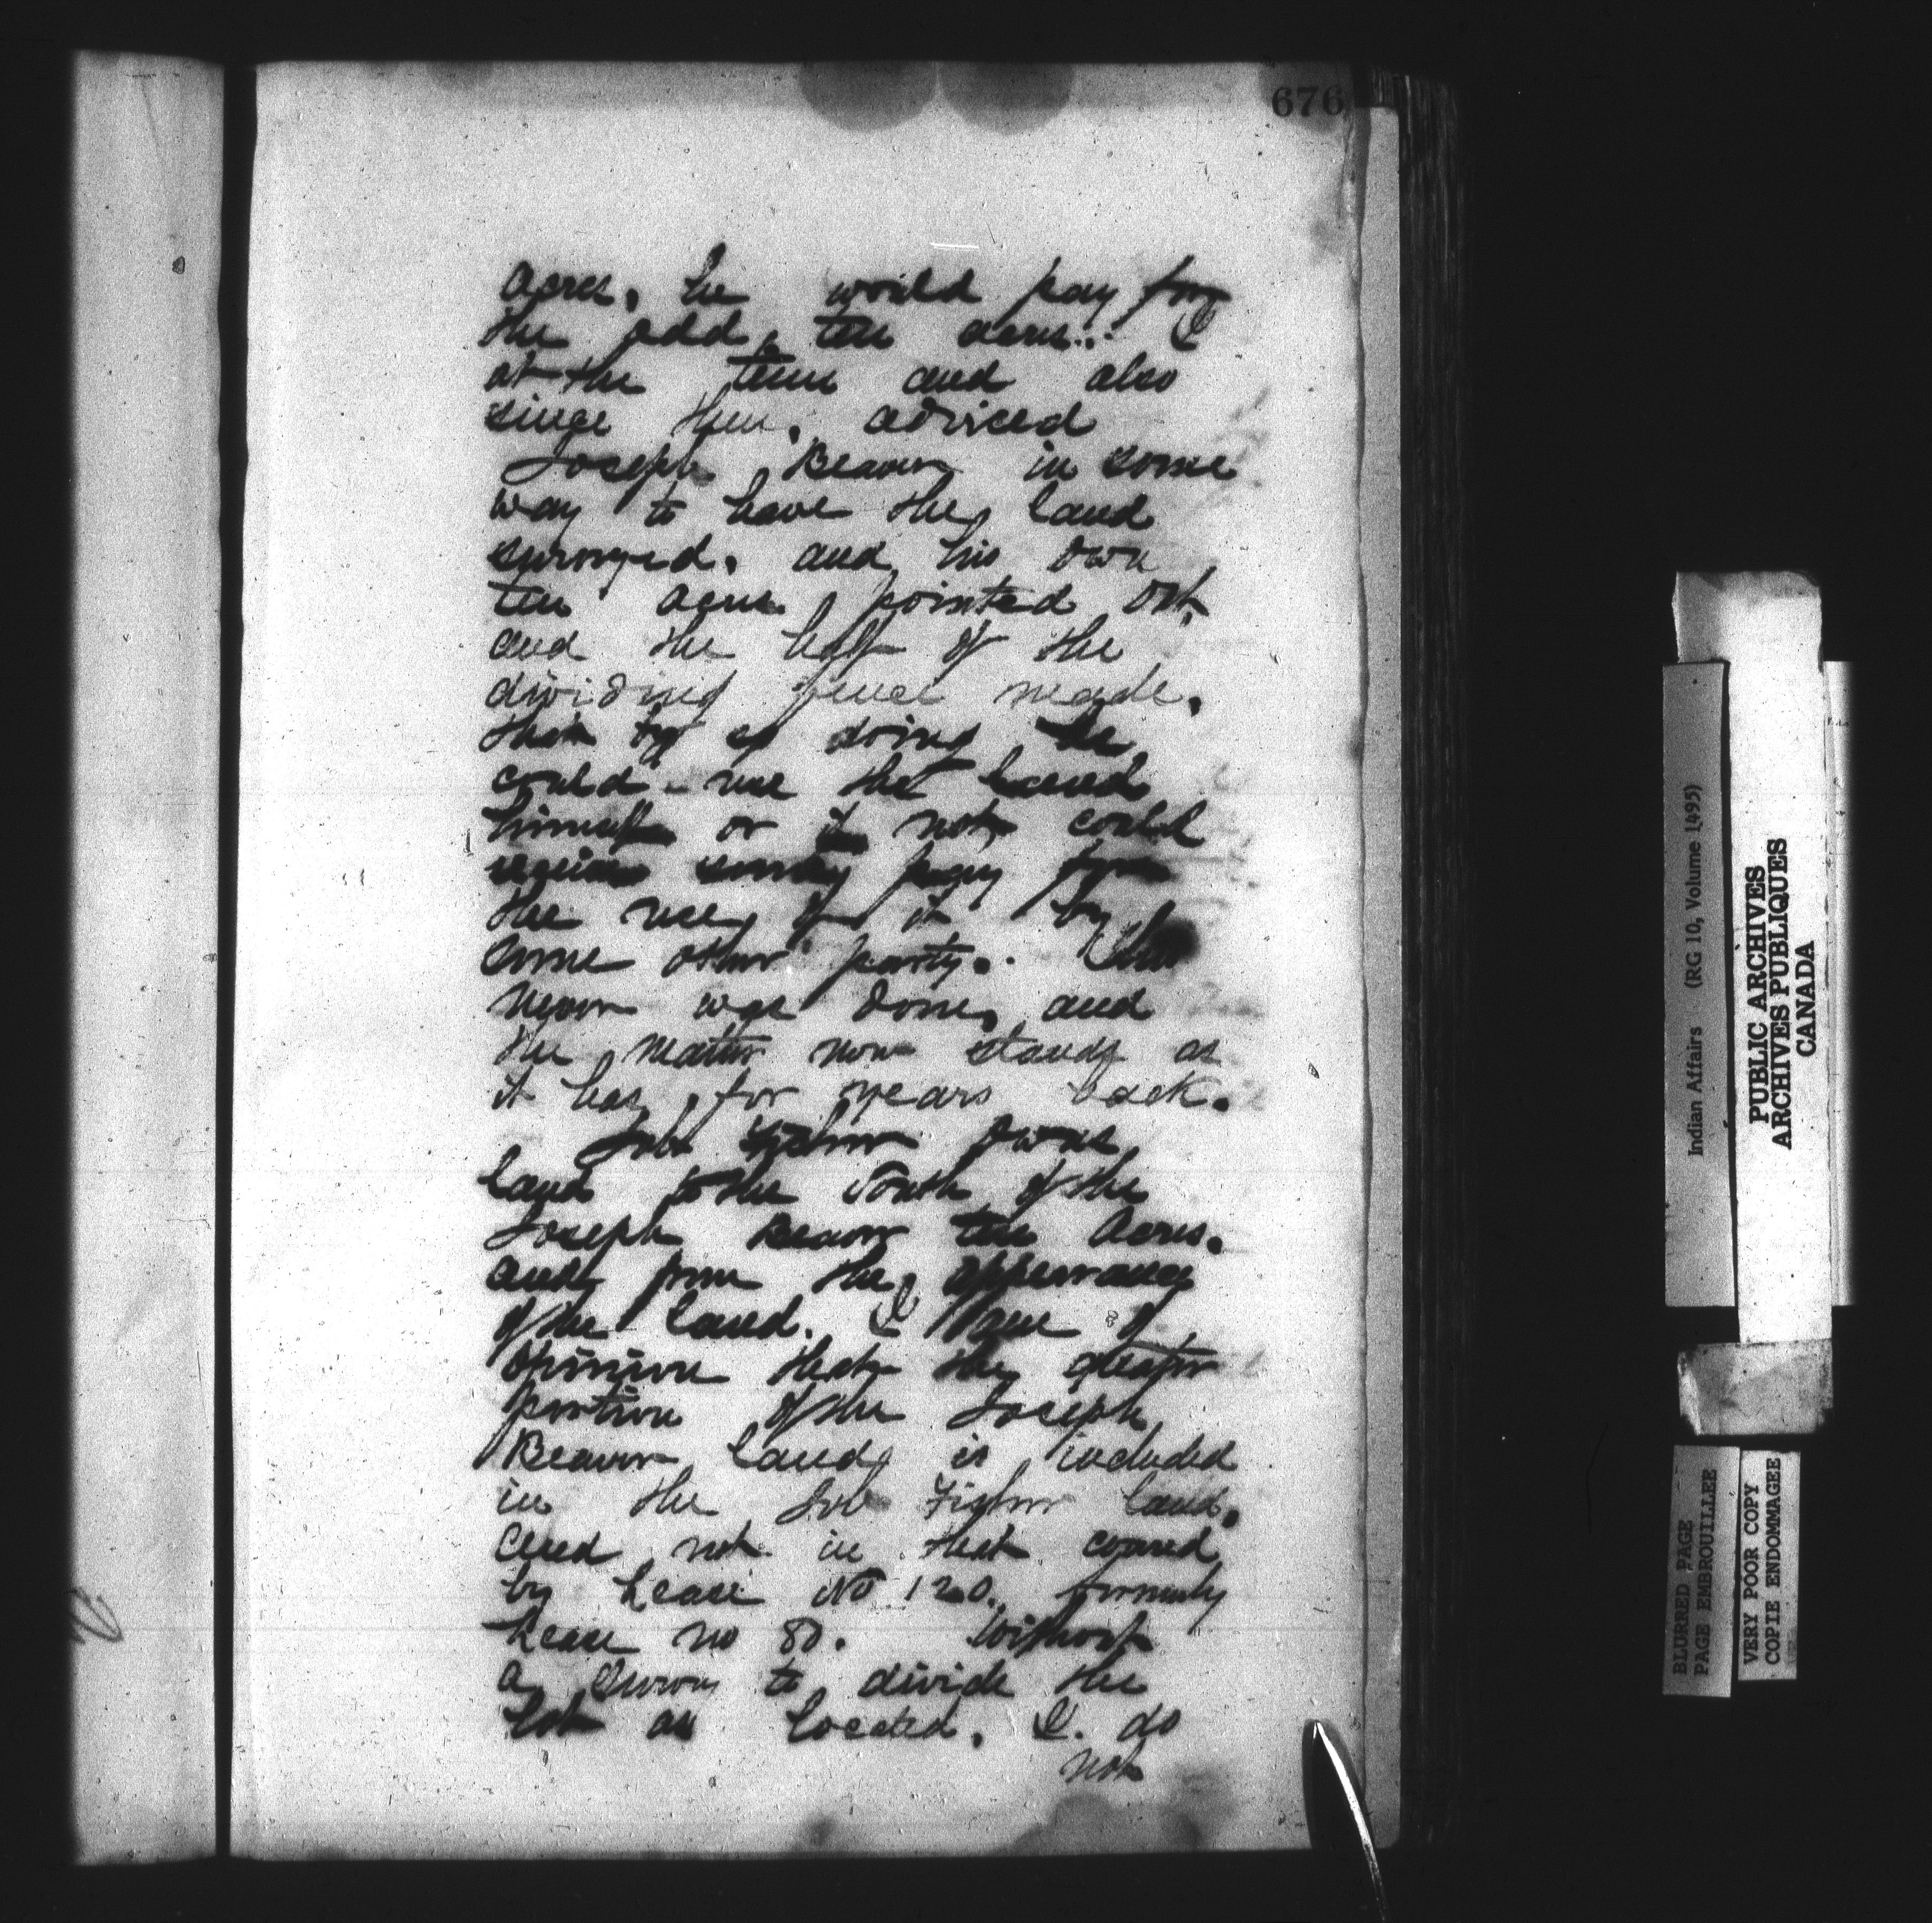 676
acres, he would pay for
the odd ten acres. I
at the time and also
since then, adviced
Joseph Beaver in some
way to have the land
surveyed. and his own
ten acres pointed out,
and the half of the
dividing fence made.
that by so doing he
could use the land
himself or if not could
receive some pay from
the use of it by
some other party.
never was done, and
the matter now stands as
it has for years back.
Job owns
land to the South of the
Joseph Beaver ten acres.
and from the appearance
of the land. I am of
opinion that the greater
portion of the Joseph
Beaver land is included
in the Job land,
and not in that covered
by Lease No 120. formerly
Lease no 80. Without
a survey to divide the
lot as located, I. do
not
Indian Affairs (RG 10, Volume 1495)
PUBLIC ARCHIVES
ARCHIVES PUBLIQUES
CANADA
BLURRED PAGE
PAGE EMBROUILLEE
VERY POOR COPY
COPIE ENDOMMAGEE